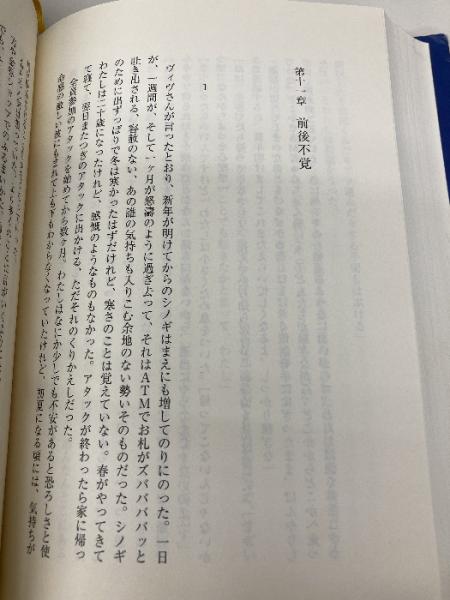 第十一章　前後不覚
1
ヴィヴさんが言ったとおり、新年が明けてからのシノギはまえにも増してのりにのった。一日
が、一週間が、そして一ヶ月が怒濤のように過ぎ去って、それはATMでお札がズバババババッと
吐き出される、容赦のない、あの誰の気持ちも入りこむ余地のない勢いそのものだった。シノギ
のために出ずっぱりで冬は寒かったはずだけれど、寒さのことは覚えていない。春がやってきて
わたしは二十歳になったけれど、感慨のようなものもなかった。アタックが終わったら家に帰っ
て寝て、翌日またつぎのアタックに出かける、ただそれのくりかえしだった。
全員参加のアタックを始めてから数ヶ月、わたしはなにか少しでも不安があると恐ろしさと使
命感の激しい波にもまれてときもわからなくなっていたけれど、初夏になる頃には、気持ちが